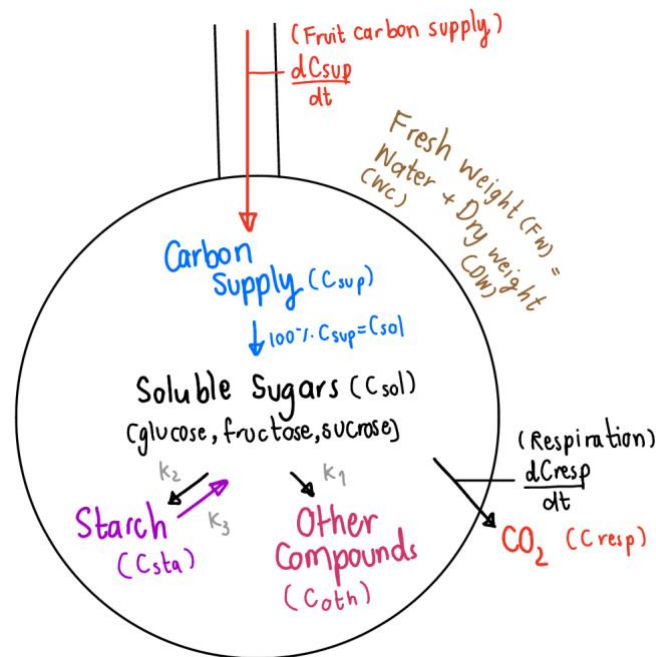 (Fruit carbon supply)
dCsup
dt
Fresh weight (FW) =
Water + Dry weight
(WC) (DW)
Carbon
Supply (Csup)
100% Csup=Csol
Soluble Sugars (Csol)
(glucose, fructose, sucrose)
K2
K3
K1
Starch
(Csta)
Other
Compounds
(Coth)
(Respiration)
dCresp
dt
CO2 (Cresp)